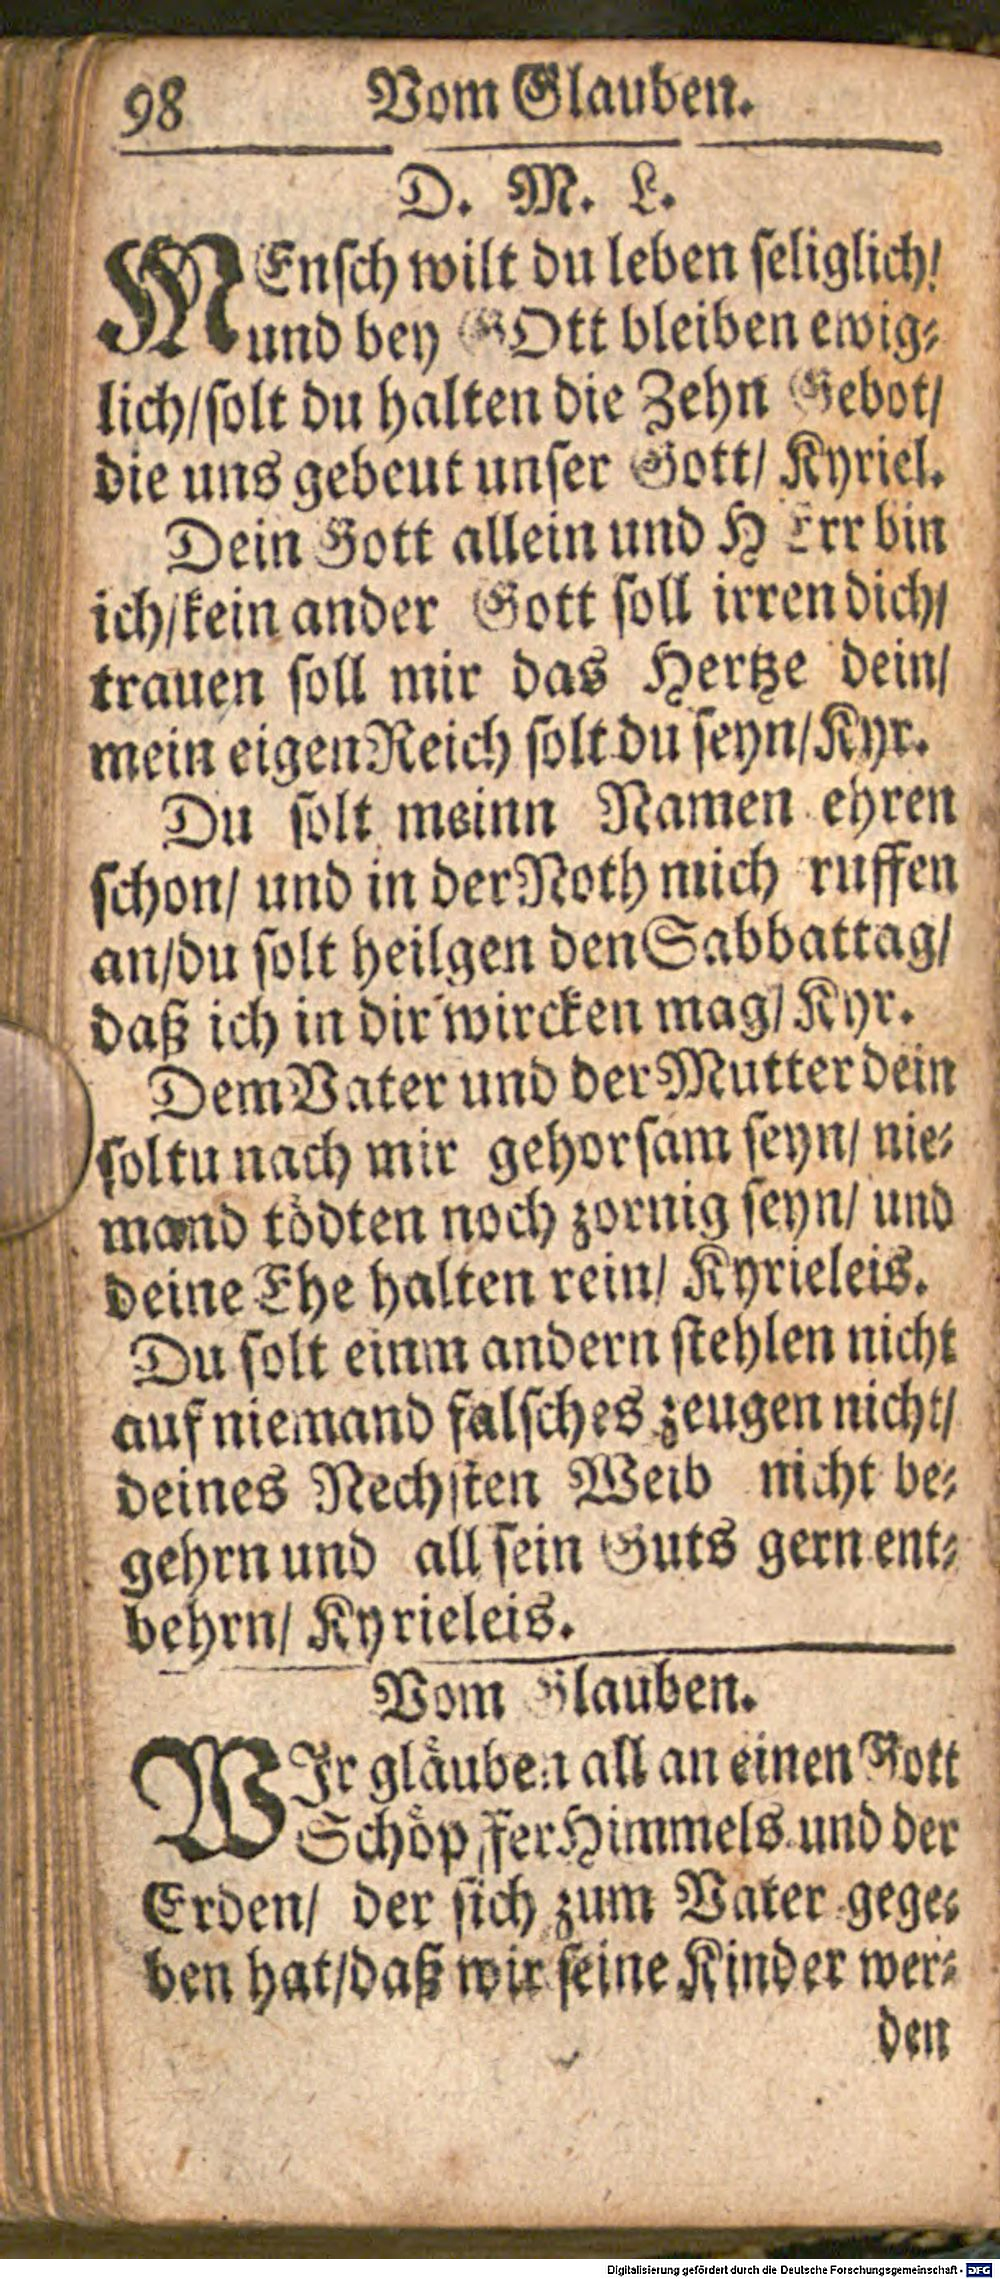 98 Vom Glauben.
D. M. L.
MEnsch wilt du leben seliglich/
und bey GOtt bleiben ewig-
lich/solt du halten die Zehn Gebot/
die uns gebeut unser Gott/ Kyriel.
Dein Gott allein und HErr bin
ich/kein ander Gott soll irren dich/
trauen soll mir das Hertze dein/
mein eigen Reich solt du seyn/Kyr.
Du solt meinn Namen ehren
schon/ und in der Noth mich ruffen
an/du solt heilgen den Sabbattag/
daß ich in dir wircken mag/ Kyr.
Dem Vater und der Mutter dein
soltu nach mir gehorsam seyn/ nie-
mand tödten noch zornig seyn/ und
deine Ehe halten rein/ Kyrieleis.
Du solt einm andern stehlen nicht
auf niemand falsches zeugen nicht/
deines Nechsten Weib nicht be-
gehrn und all sein Guts gern ent-
behrn/ Kyrieleis.
Vom Glauben.
WIr gläuben all an einen Gott
Schöpffer Himmels und der
Erden/ der sich zum Vater gege-
ben hat/daß wir seine Kinder wer-
den
Digitalisierung gefördert durch die Deutsche Forschungsgemeinschaft - DFG